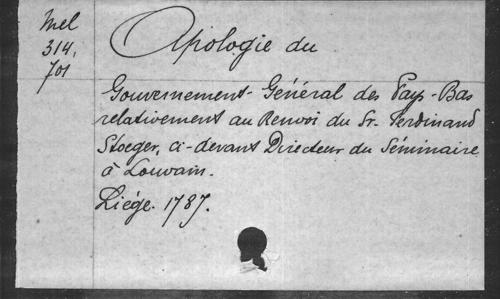 Mel
314,
701
Apologie du
Gouvernement-Général des Pays-Bas
relativement au Renvoi du Sr. Ferdinand
Stoeger, ci-devant Directeur du Séminaire
à Louvain.
Liége. 1787.